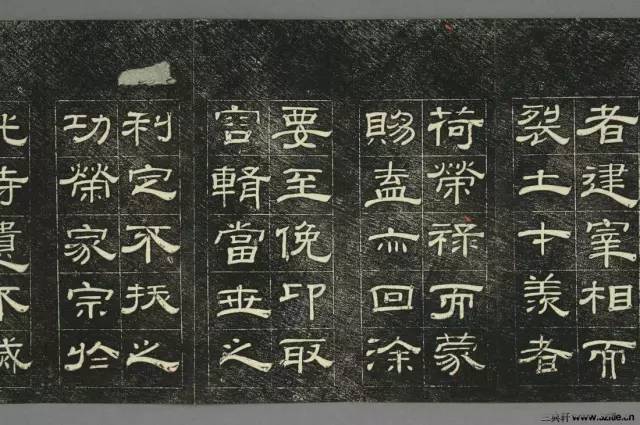 者建宰相而
裂土才羨者
荷榮祿而蒙
賜盍亦回涂
要至俛卬取
容輯當世之
利定不拔之
功榮家宗於
此寺遺不滅